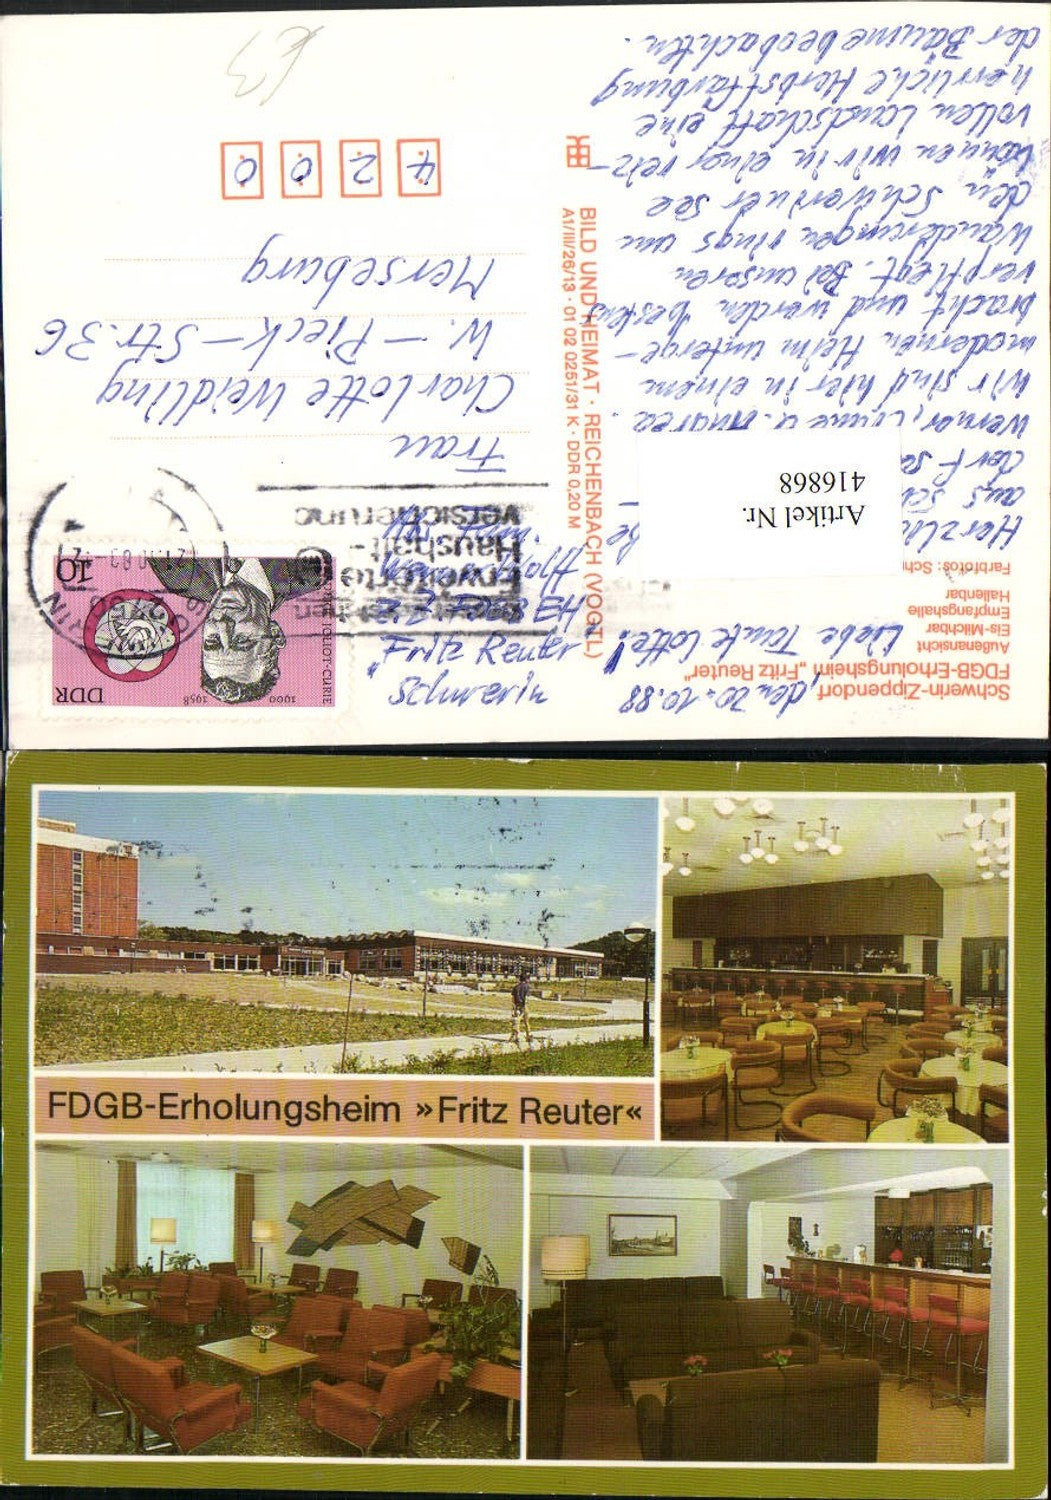 Schwerin-Zippendorf
FDGB-Erholungsheim „Fritz Reuter"
Außenansicht
Eis-Milchbar
Empfangshalle
Hallenbar
Farbfotos: Sch
, den 20.10.88
Liebe Tante Lotte!
Herzlic
aus Sch
der F
Werner,
wir sind hier in einem
modernen Heim unterge-
bracht und werden bestens
verpflegt. Bei unseren
Wanderungen rings um
den Schweriner See
können wir in einer reiz-
vollen Landschaft eine
herrliche Herbstfärbung
der Bäume beobachten.
Artikel Nr.
416868
BILD UND HEIMAT · REICHENBACH (VOGTL)
A1/III/26/13 · 01 02 0251/31 K · DDR 0,20 M
FDGB EH
„Fritz Reuter"
Schwerin
erweiterte
Haushalt-
versicherung
DDR
10
1900 1958
JOLIOT-CURIE
Frau
Charlotte Weidling
W.-Pieck-Str. 36
Merseburg
4 2 0 0
€3
FDGB-Erholungsheim »Fritz Reuter«